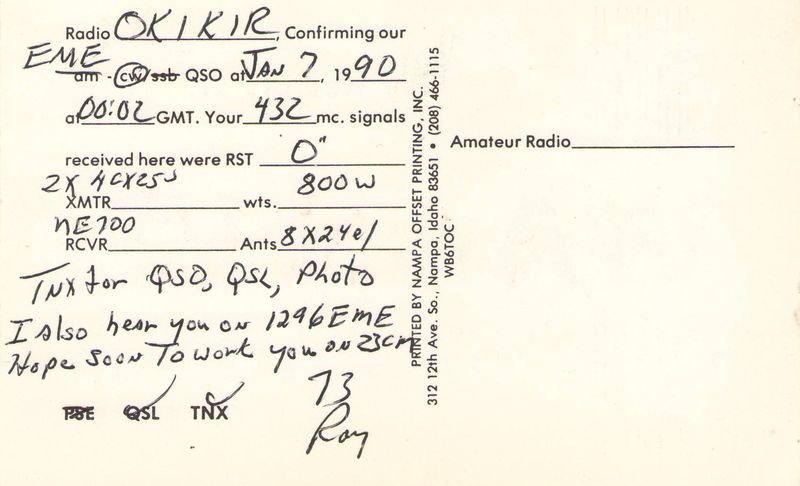 Radio OK1KIR, Confirming our
EME
am - cw/ssb QSO at Jan 7, 1990
at 00:02 GMT. Your 432 mc. signals
received here were RST O"
2X 4CX250 800W
XMTR wts.
NE700
RCVR Ants 8X24el
TNX for QSO, QSL, Photo
I also hear you on 1296 EME
Hope soon To work you on 23cm
73
PSE QSL TNX
Ray
PRINTED BY NAMPA OFFSET PRINTING, INC.
312 12th Ave. So., Nampa, Idaho 83651 • (208) 466-1115
WB6TOC
Amateur Radio